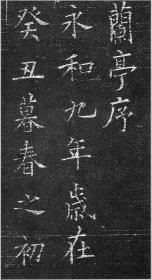 蘭亭序
永和九年歲在
癸丑暮春之初